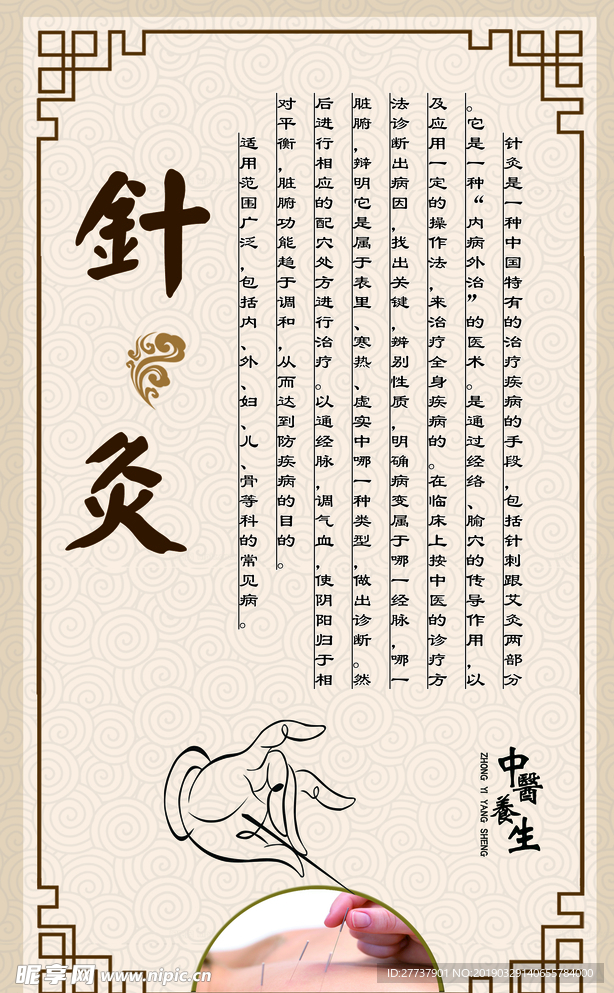 針灸
针灸是一种中国特有的治疗疾病的手段，包括针刺跟艾灸两部分
。它是一种“内病外治”的医术。是通过经络、腧穴的传导作用，以
及应用一定的操作法，来治疗全身疾病的。在临床上按中医的诊疗方
法诊断出病因，找出关键，辨别性质，明确病变属于哪一经脉，哪一
脏腑，辩明它是属于表里、寒热、虚实中哪一种类型，做出诊断。然
后进行相应的配穴处方进行治疗。以通经脉，调气血，使阴阳归于相
对平衡，脏腑功能趋于调和，从而达到防疾病的目的。
适用范围广泛，包括内、外、妇、儿、骨等科的常见病。
中醫養生
ZHONG YI YANG SHENG
昵享网 www.nipic.cn
ID:27737901 NO:20190329140655784000